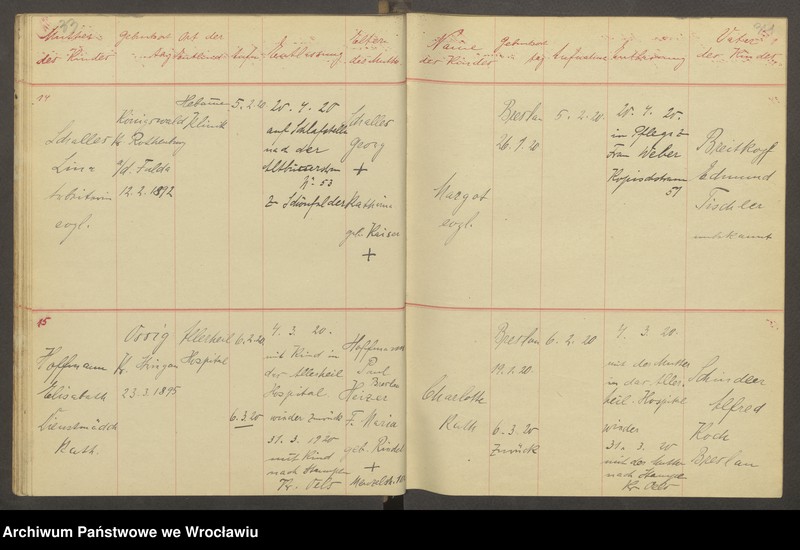 Mutter Geburtsort Ort der Eltern
der Kinder tag Aufn. Entlassung der Mutter
Name Geburtsort Vater
der Kinder tag Aufnahme Entlassung der Kinder
14
Schaller
Lina
Arbeiterin
evgl.
Königswald
Kr. Rothenburg
a/d. Fulda
12.2.1892
Hebammen
Klinik
5.2.20
20. 4. 20
auf Schlafstelle
nach der
No 53
z. Schönfelder
Schaller
Georg
+
Katharina
geb. Kaiser
+
Margot
evgl.
Breslau
26.1.20
5. 2. 20.
20. 4. 20.
in Pflege
Frau Weber
51
Breitkopf
Edmund
Tischler
unbekannt
15
Hoffmann
Elisabeth
Dienstmädch
Kath.
Ossig
Kr. Striegau
23.3.1895
Allerheil
Hospital
6.2.20
6.3.20
4. 3. 20.
mit Kind in
der Allerheil
Hospital
wieder zurück
31. 3. 1920
mit Kind
nach
Kr. Oels
Hoffmann
Paul
Breslau
Heizer
F. Maria
geb.
+
Charlotte
Ruth
Breslau
19.1.20
6. 3. 20
zurück
6. 2. 20
4. 3. 20.
mit der Mutter
in das Aller.
heil. Hospital
wieder
31. 3. 20
mit der Mutter
nach
Kr. Oels
Schindler
Alfred
Koch
Breslau
Archiwum Państwowe we Wrocławiu